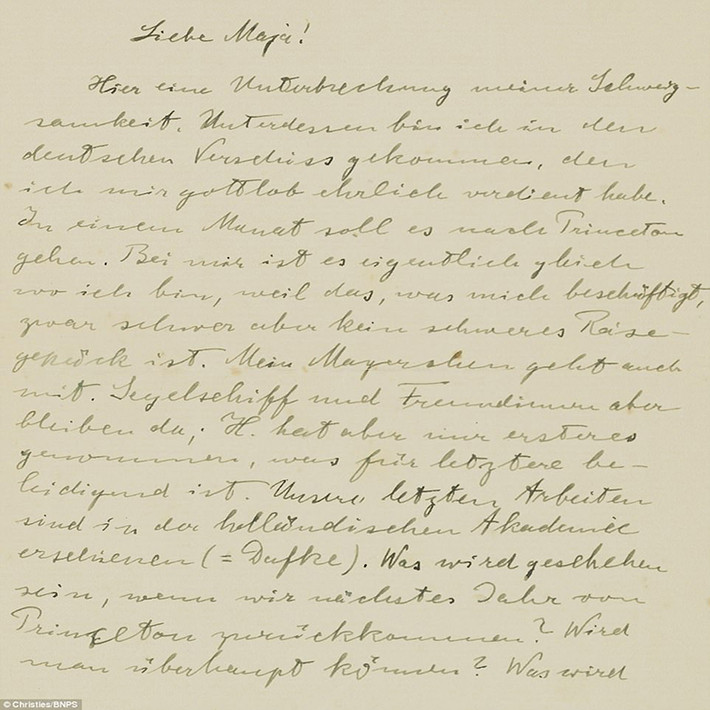 Liebe Maja!
Hier eine Unterbrechung meiner Schweig-
samkeit. Unterdessen bin ich in den
deutschen Verschiss gekommen, den
ich mir gottlob ehrlich verdient habe.
In einem Monat soll es nach Princeton
gehen. Bei mir ist es eigentlich gleich
wo ich bin, weil das, was mich beschäftigt,
zwar schwer aber kein schweres Reise-
gepäck ist. Mein Mayerchen geht auch
mit. Segelschiff und Freundinnen aber
bleiben da; H. hat aber nur ersteres
genommen, was für letztere be-
leidigend ist. Unsere letzten Arbeiten
sind in der holländischen Akademie
erschienen (= Dafke). Was wird geschehen
sein, wenn wir nächstes Jahr von
Princeton zurückkommen? Wird
man überhaupt können? Was wird
© Christies/BNPS